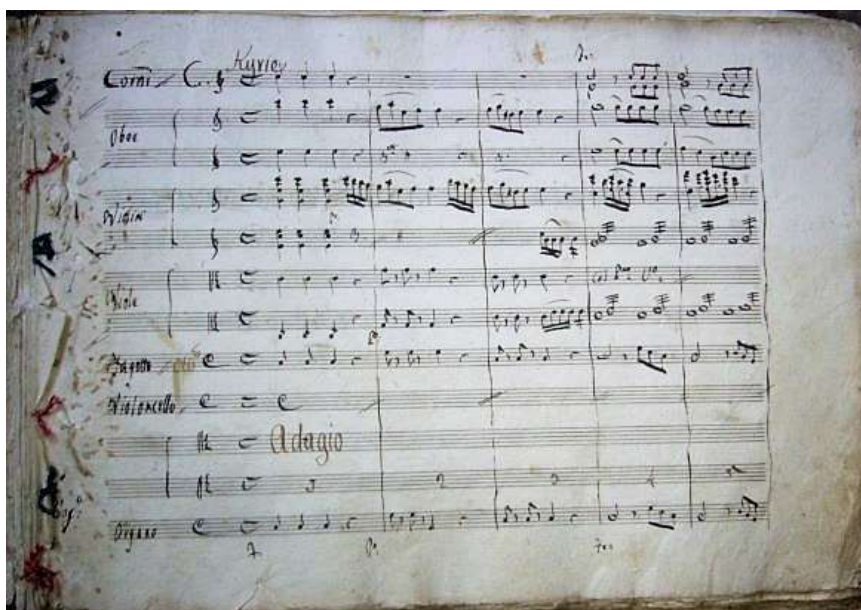 Kyrie
Corni
Oboe
Violini
Viole
Fagotto
Violoncello
Adagio
2 3 4 5
Organo